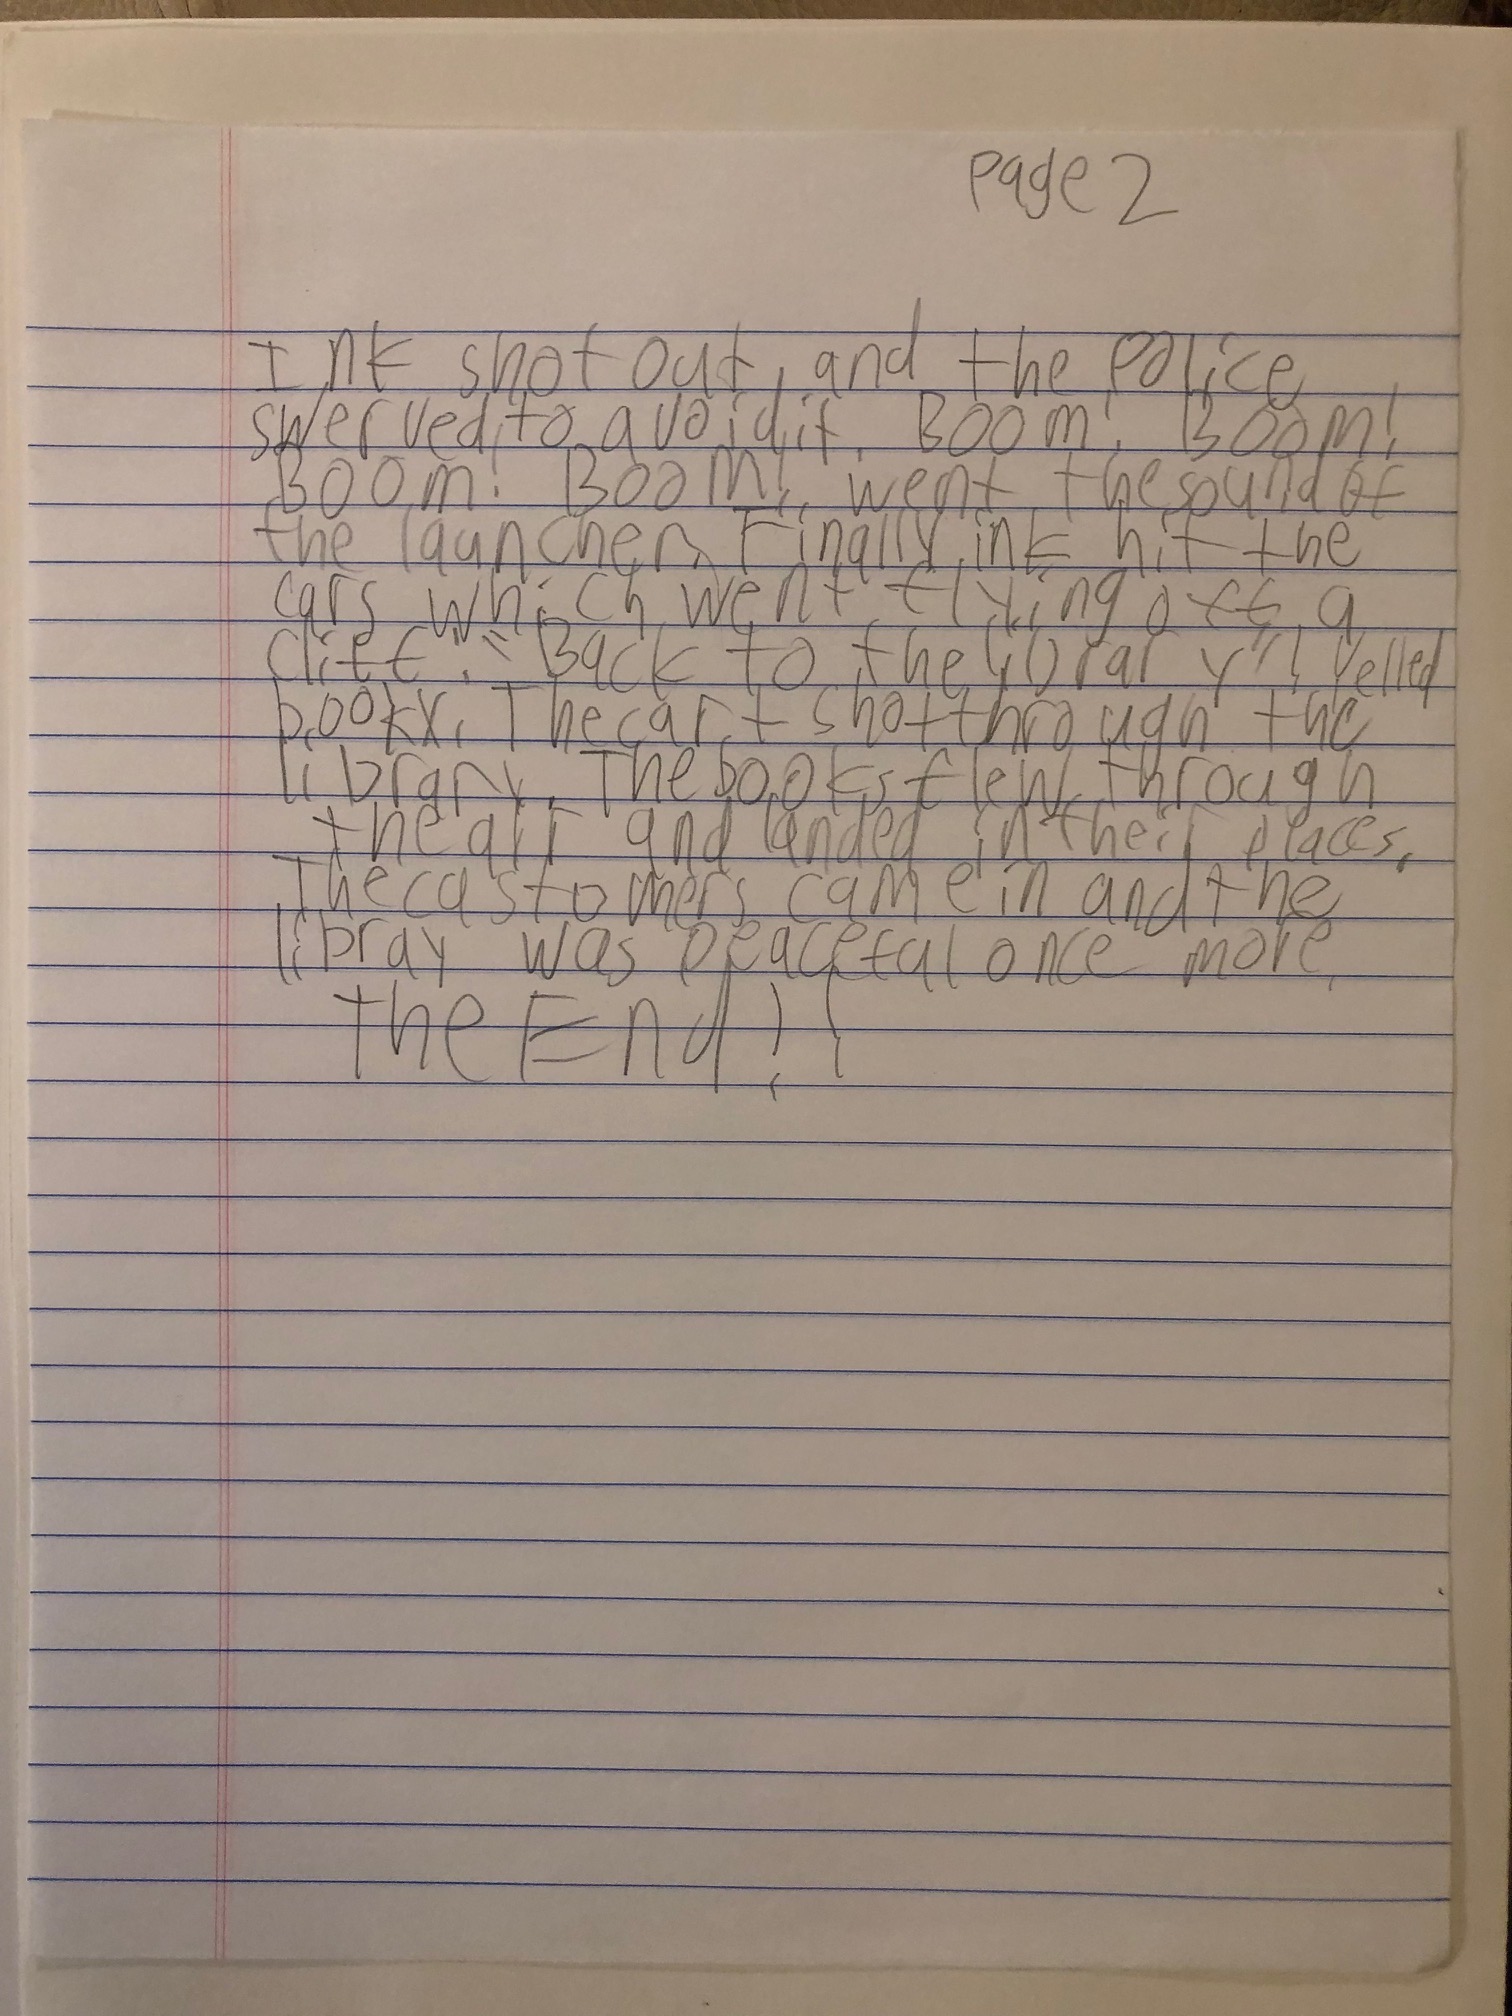 Page 2
Ink shot out, and the police
swerved to avoid it. Boom! Boom!
Boom! Boom! went the sound of
the launcher. Finally ink hit the
cars which went flying off a
cliff. "Back to the library"! yelled
bookx. The cart shot through the
library. The books flew through
the air and landed in their places.
The castomers came in and the
libray was peacefal once more.
the End!!